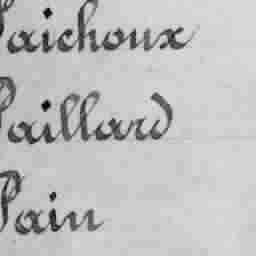 Paichoux
Paillard
Pain